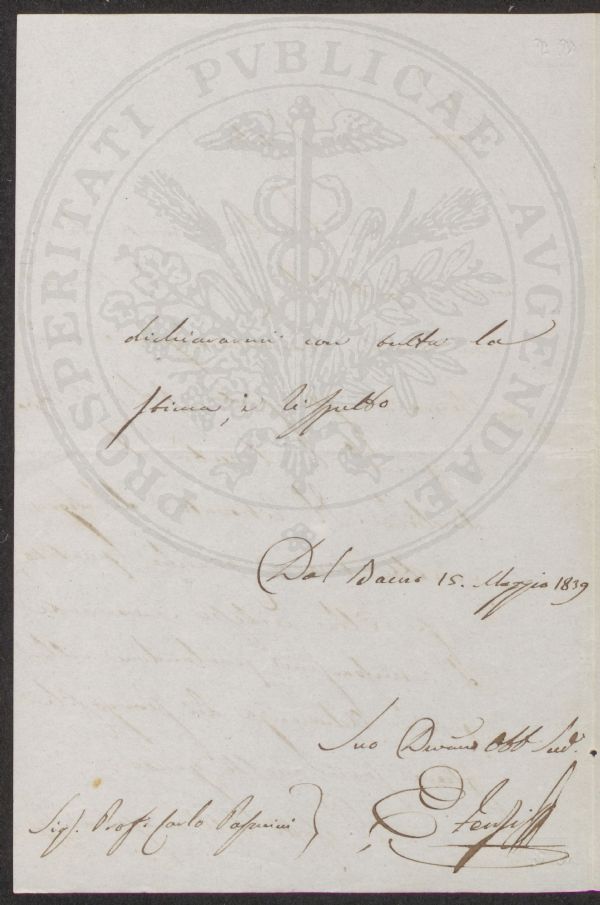 PROSPERITATI PVBLICAE AVGENDAE
dichiararmi con tutta la
stima, e rispetto
Dal Bacno 15. Maggio 1839
Suo Devmo Obb Serv.
Sigr. Profr. Carlo